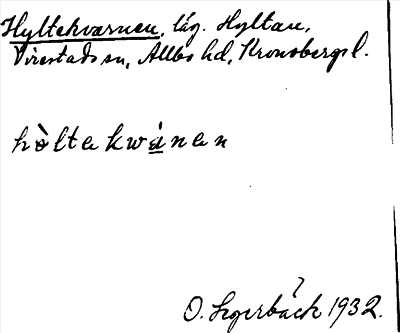 Hyltekvarnen, läg. Hyltan,
Virestads sn, Allbo hd, Kronobergs l.
hòltakwánan
O. Segerbäck 1932.